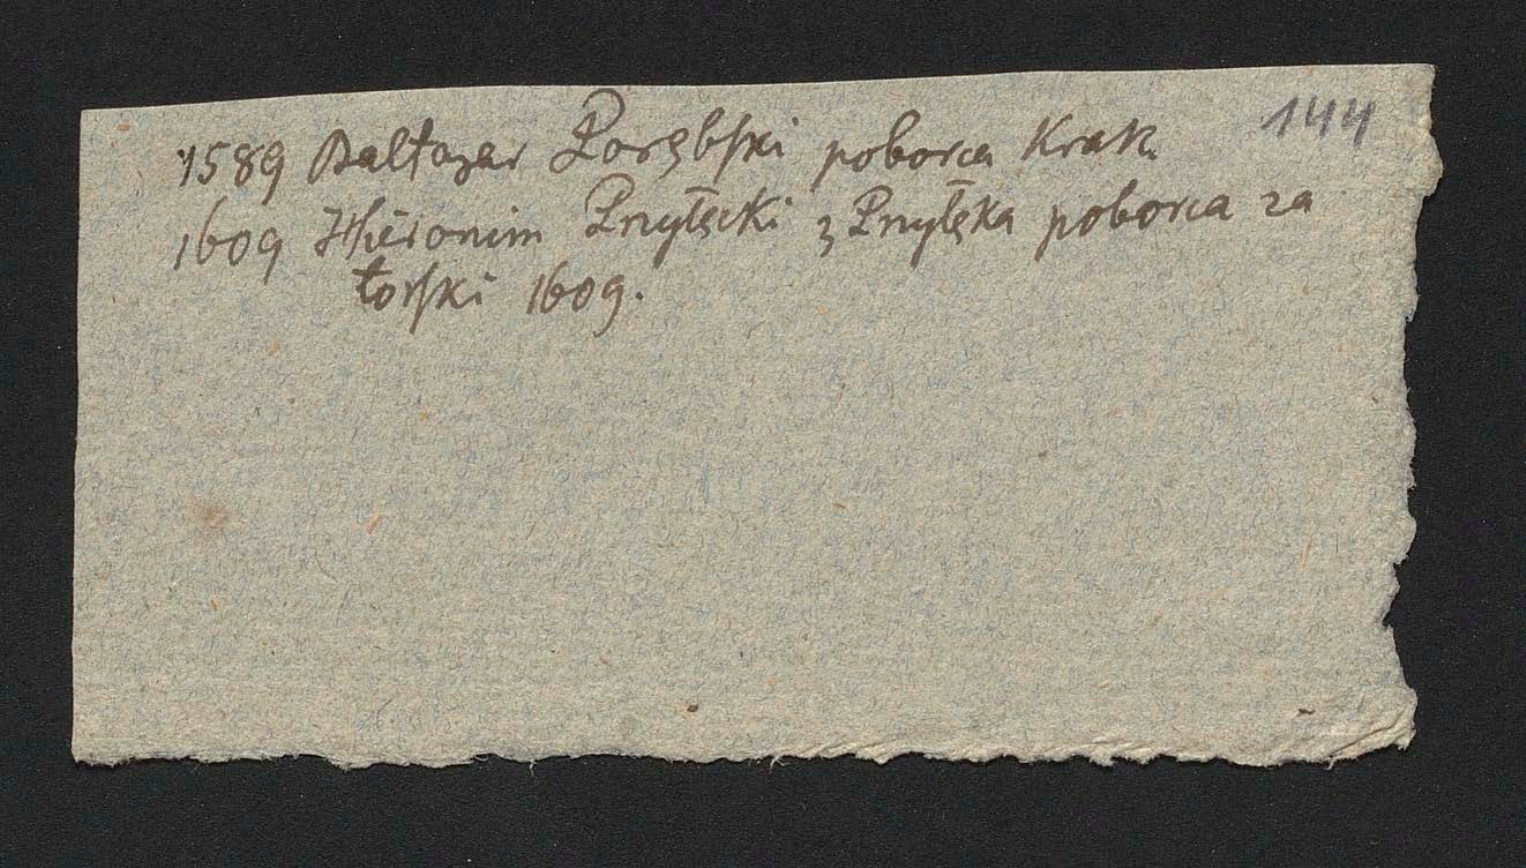 144
1589 Baltazar Porębski poborca Krak.
1609 Hieronim Przyłęcki z Przyłęka poborca za
torski 1609.